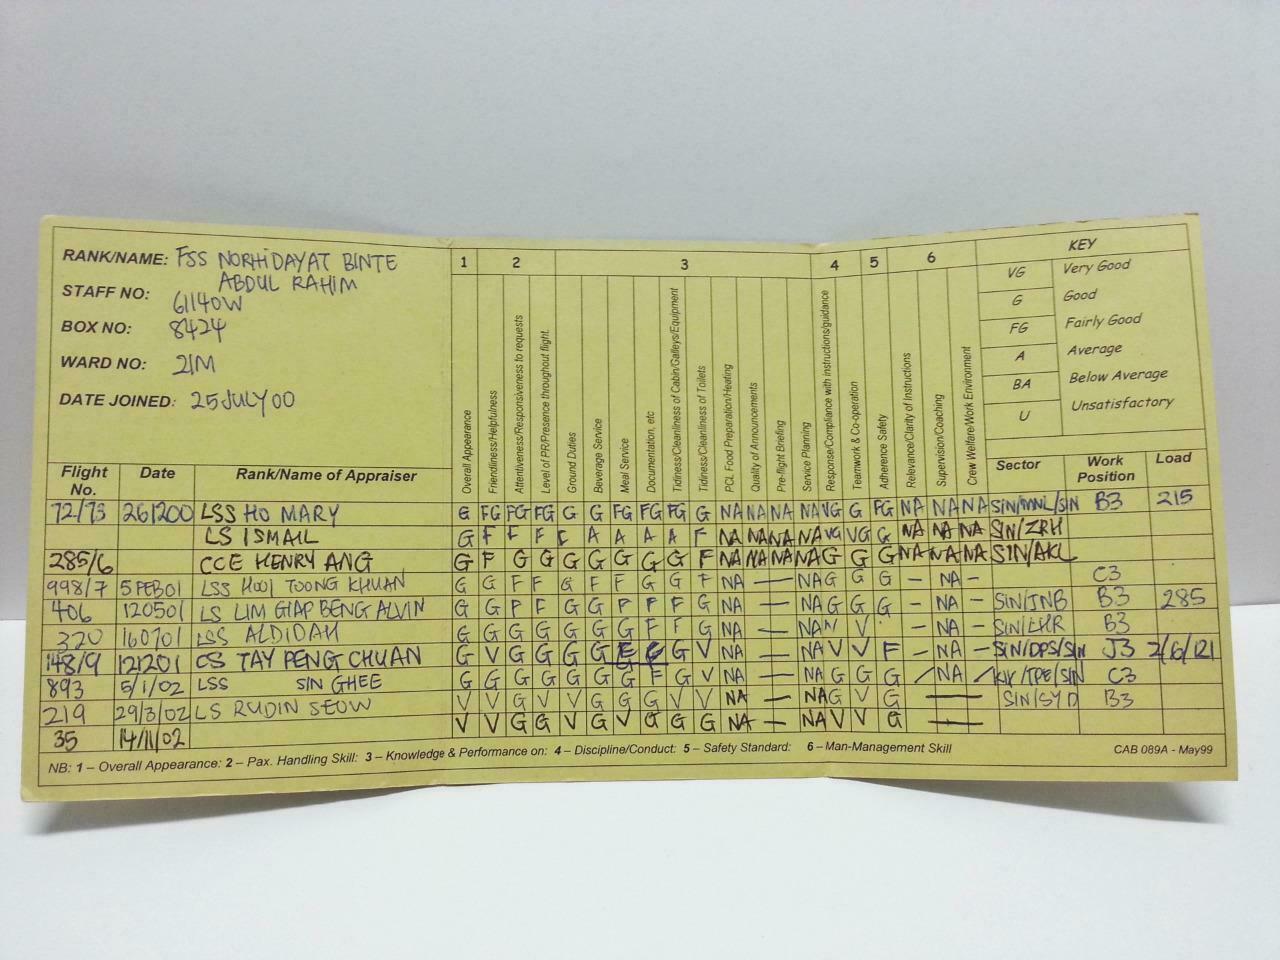 RANK/NAME: FSS NORHIDAYAT BINTE
ABDUL RAHIM
STAFF NO: 61140W
BOX NO: 8424
WARD NO: 21M
DATE JOINED: 25 JULY 00
1 2 3 4 5 6 KEY
VG Very Good
G Good
FG Fairly Good
A Average
BA Below Average
U Unsatisfactory
Flight No. Date Rank/Name of Appraiser
Overall Appearance
Friendliness/Helpfulness
Attentiveness/Responsiveness to requests
Level of PR/Presence throughout flight.
Ground Duties
Beverage Service
Meal Service
Documentation, etc
Tidiness/Cleanliness of Cabin/Galleys/Equipment
Tidiness/Cleanliness of Toilets
PCL Food Preparation/Heating
Quality of Announcements
Pre-flight Briefing
Service Planning
Response/Compliance with instructions/guidance
Teamwork & Co-operation
Adherence Safety
Relevance/Clarity of Instructions
Supervision/Coaching
Crew Welfare/Work Environment
Sector Work Position Load
72/73 261200 LSS HO MARY G FG FG FG G G FG FG FG G NA NA NA NA VG G FG NA NA NA SIN/MNL/SIN B3 215
LS ISMAIL G F F F F A A A A F NA NA NA NA VG VG G NA NA NA SIN/ZRH
285/6 CCE HENRY ANG G F G G G G G G G F NA NA NA NA G G G NA NA NA SIN/AKL
998/7 5FEB01 LSS HOOI TOONG KHUAN G G F F G F F G G F NA — NA G G G – NA – C3
406 120501 LS LIM GIAP BENG ALVIN G G F F G G F F F G NA — NA G G G – NA – SIN/JNB B3 285
320 160701 LSS ALDIDAH G G G G G G G F F G NA — NA V V – NA – SIN/LHR B3
148/9 121201 CS TAY PENG CHUAN G V G G G G G V NA — NA V V F – NA – SIN/DPS/SIN J3 2/6/121
893 5/1/02 LSS SIN GHEE G G G G G G G F G V NA — NA G G G NA /TPE/SIN C3
219 29/3/02 LS RUDIN SEOW V V G V V G G G V V NA — NA G V G — SIN/SYD B3
35 14/11/02 V V G G V G V G G G NA — NA V V G —
NB: 1 – Overall Appearance: 2 – Pax. Handling Skill: 3 – Knowledge & Performance on: 4 – Discipline/Conduct: 5 – Safety Standard: 6 – Man-Management Skill CAB 089A - May99